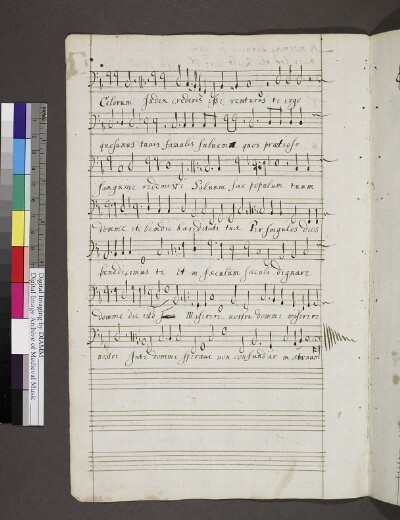 Celorum Judex crederis esse venturus te ergo
quesumus tuois famulis subueni quos pretioso
sanguine redemisti Saluum fac populum tuum
domine et benedic hæreditati tuæ Per singulos dies
benedicimus te Et in sæculum sæculi dignare
domine die isto Miserere nostri domine miserere
nostri Inte domine speraui non confundar in æternum
Digital Imaging by DIAMM
Digital Image Archive of Medieval Music